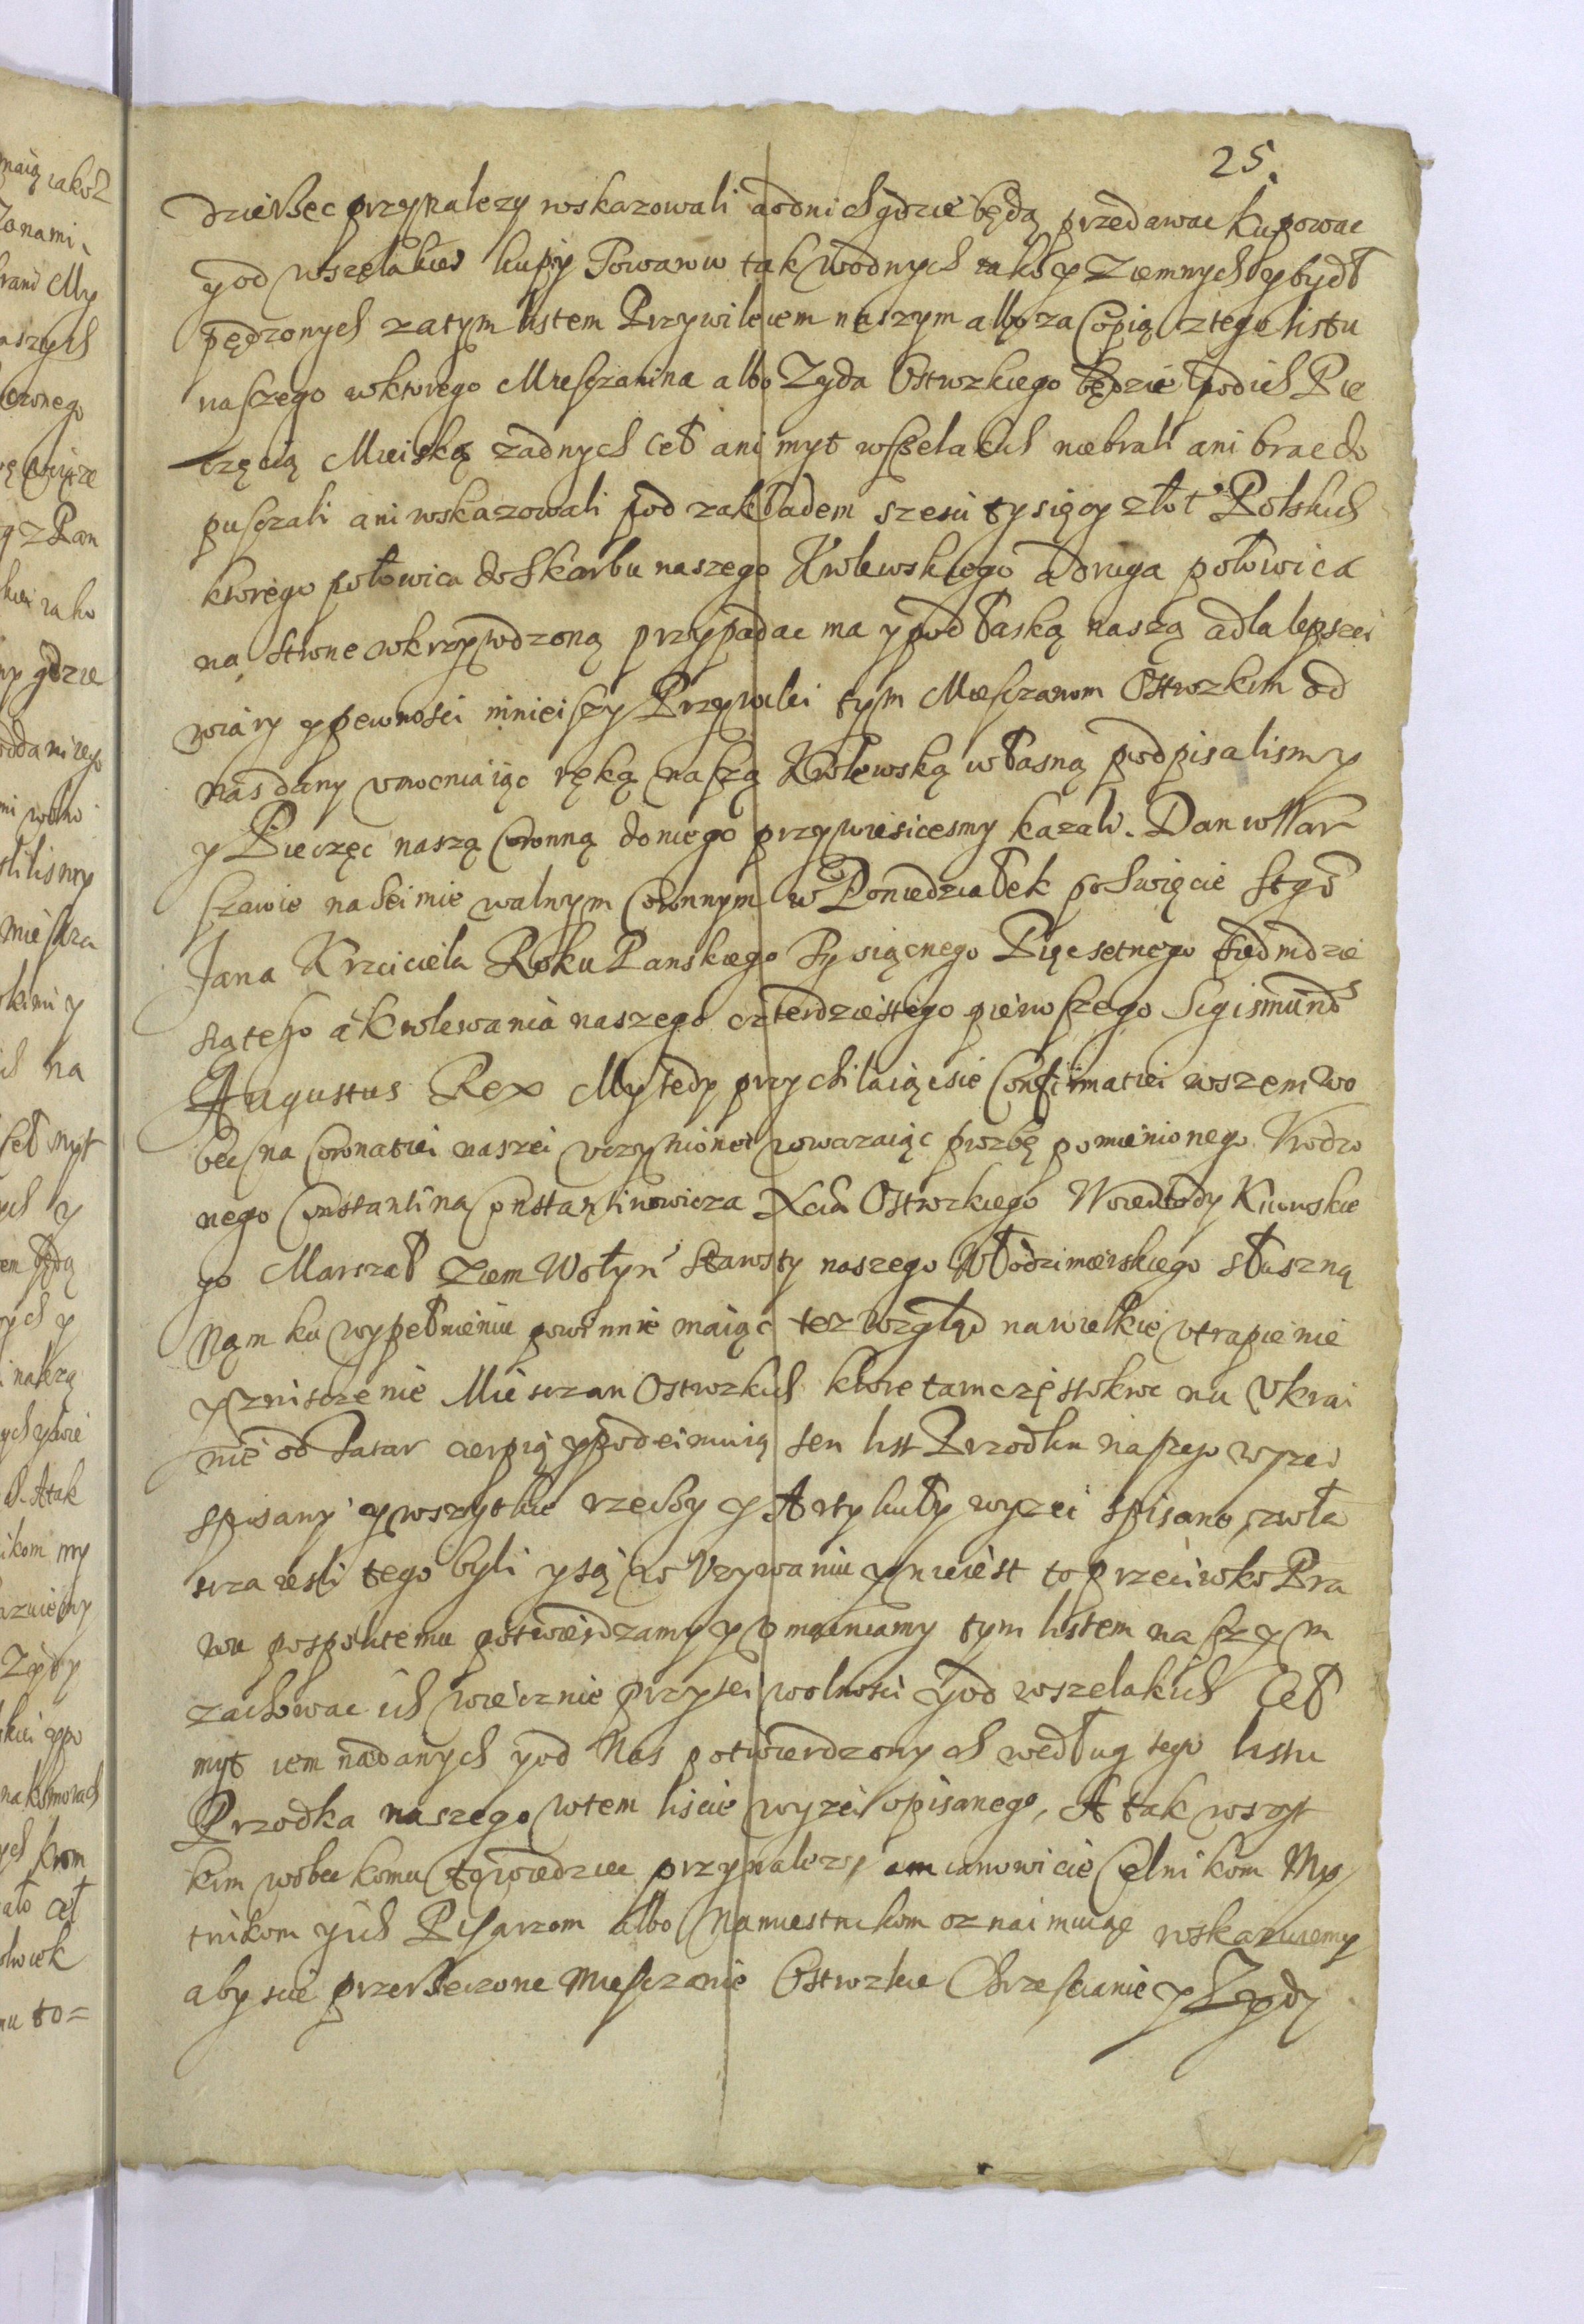 25.
dzieRzec przynalezy wskazowali a odnich gdzie będą przedawac kupowac
y od wszelakiei kupy Towarow tak wodnych iako y Ziemnych y bydł
pędzonych za tym listem Przywileiem naszym albo za Copią z tego listu
naszego u ktorego Miesczanina albo Zyda Ostrozkiego będzie pod ich Pie
częcią Mieiską zadnych Ceł ani myt wszelakich niebrali ani brac do
pusczali ani wskazowali pod zakładem szesci tysięcy złot Polskich
ktorego połowica do Skarbu naszego Krolewskiego a druga połowica
na strone ukrzywdzoną przypadac ma y pod łaską naszą a dla lepszei
wiary y pewnosci mnieiszy Przywilei tym Miesczanom Ostrozkim od
nas dany umocniaiąc ręką naszą Krolewską własną podpisalismy
y Pieczęc naszą Coronną do niego przywiesicesmy kazali. Dan w War
szawie na Seimie walnym Coronnym w Poniedziałek po Swięcie Stgo
Jana Krzciciela Roku Panskiego Tysiącnego Pięcsetnego Siedmdzie
siątego a Krolewania naszego czterdziestego pierwszego Sigismunds
Augustus Rex My tedy przychilaiącsie Confirmatiei wszem wo
bec na Coronatiei naszei uczynionei uwazaiąc prozbę pomienionego Urodzo
nego Constantina Constantinowicza Xcia Ostrozkiego Woiewody Kiiowskie
go Marszał Ziem Wołyn Starosty naszego Włodzimierskiego słuszną
Nąm ku wypełnieniu powinnie maiąc tez wzgląd na wielkie utrapienie
y znisczenie Miesczan Ostrozkich ktore tam częstokroc na Ukrai
nie od Tatar cierpią y podeimuią ten list Przodku naszego wyzei
spisany y wszytkie rzechy y Artykuły wyzei spisane, zwła
scza iesli tego byli y są w Uzywaniu y nieiest to przeciwko Pra
wu pospolitemu potwierdzamy y umacniamy tym listem naszym
zachowac ich wiecznie przy tei wolnosci y od wszelakich Ceł
myt iem nadanych y od Nas potwierdzonych według tego listu
Przodka naszego w tem liscie wyzei opisanego, A tak wszyt
kim wobec komu to wiedziec przynalezy, a mianowicie Celnikom My
tnikom y ich Pisarzom albo Namiestnikom oznaimuiąc wskazuiemy
aby scie przerzeczone Miesczanie Ostrozkie Chrzescianie y Zydy